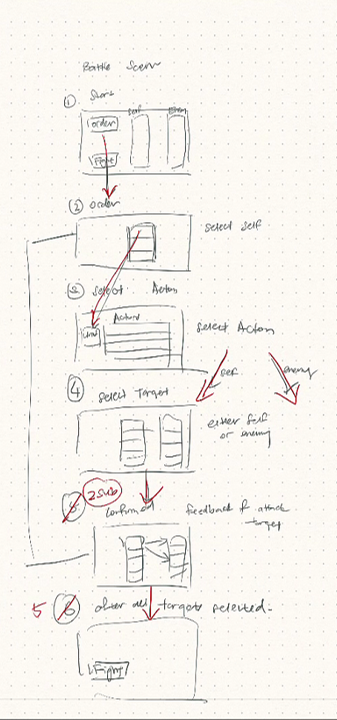 Battle Scene
① Start
Self Enemy
order
Fight
② order
Select Self
③ Select Action
Action
Select Action
self enemy
④ Select Target
either self
or enemy
2 sub
5 Confirmed Feedback of attack
target
5 6 after all targets selected.
Fight